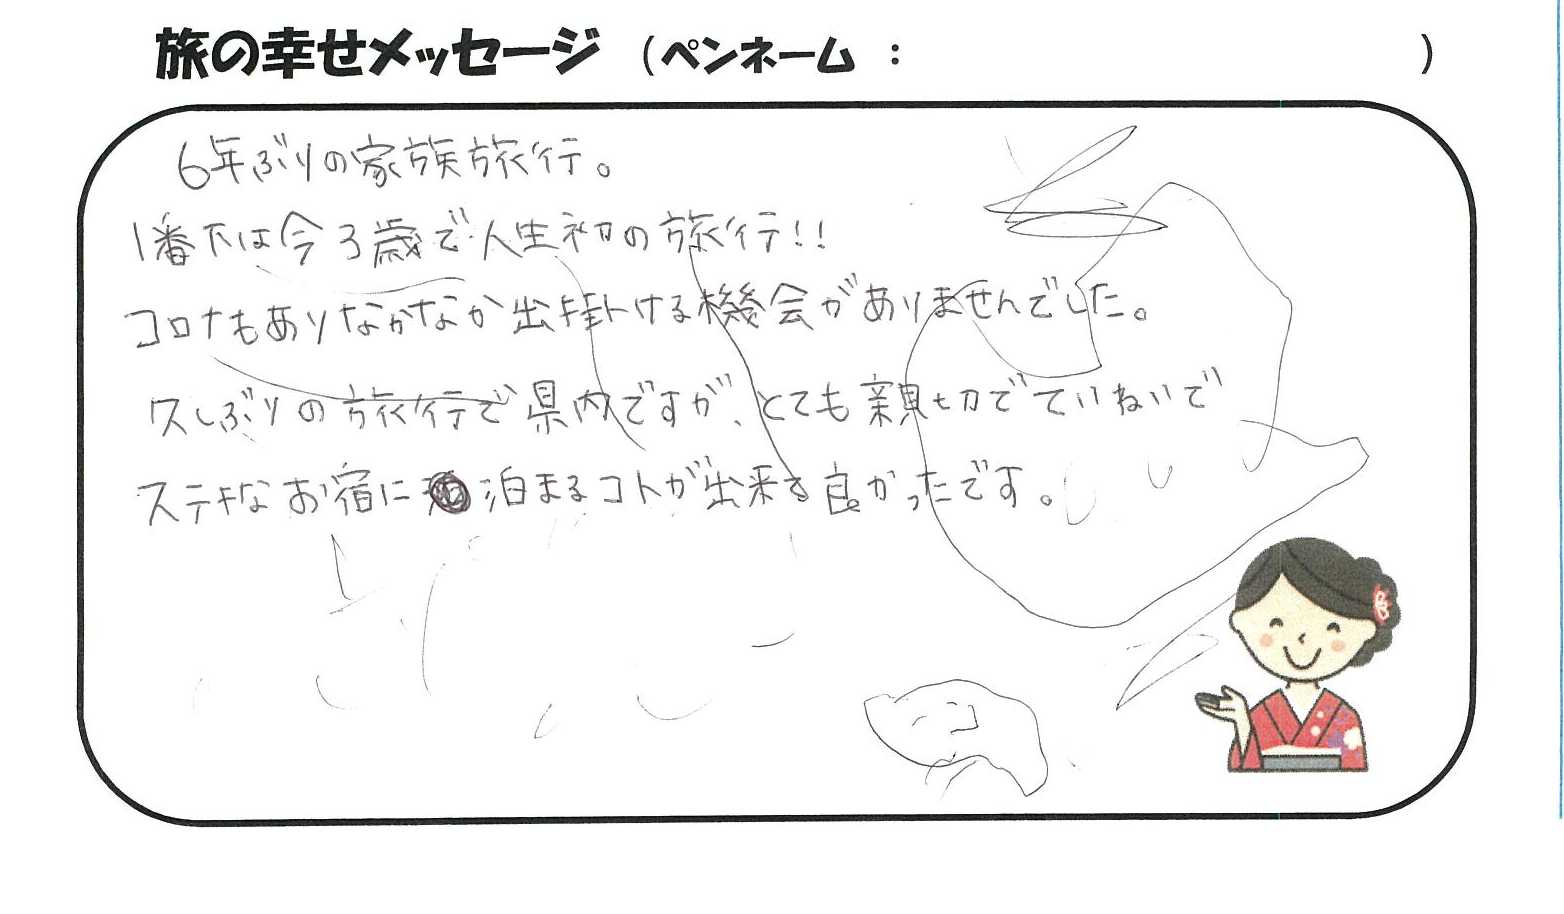 旅の幸せメッセージ （ペンネーム ： ）
6年ぶりの家族旅行。
1番下は今3歳で人生初の旅行!!
コロナもありなかなか出掛ける機会がありませんでした。
久しぶりの旅行で県内ですが、とても親切でていねいで
ステキなお宿に泊まるコトが出来て良かったです。